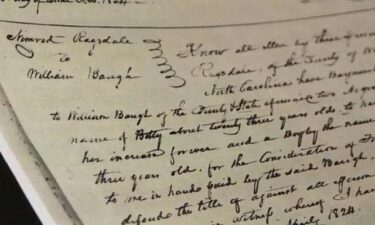 day of
Nimrod Ragsdale
to
William Baugh
Know all Men by these
Ragsdale of the County of W
North Carolina have Bargained
to William Baugh of the County & State aforesaid two Negroes
name of Betty about twenty three years old to have
her increase forever and a Boy by the name
three years old, for the Consideration of
to me in hand paid by the said Baugh.
defend the title of against all person
in witness whereof I have
1824